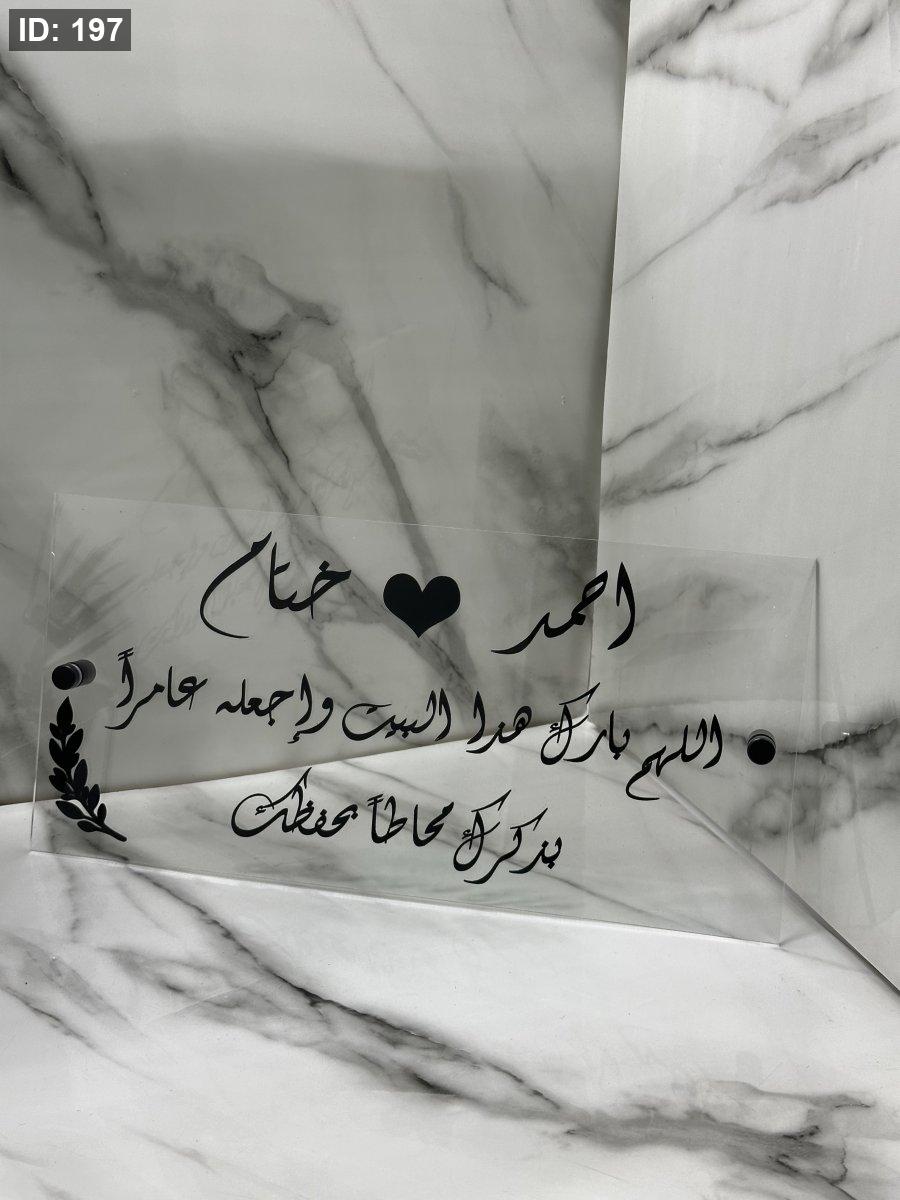 ID: 197
احمد ♥ ختام
اللهم بارك هدا البيت وإجعله عامراً
بذكرك محاطاً بحفظك